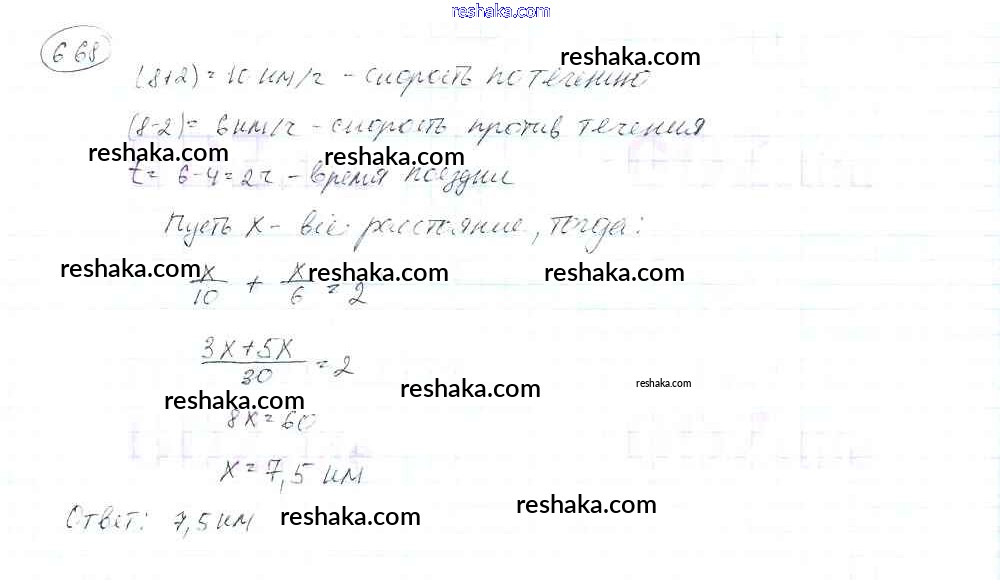 reshaka.com
668
reshaka.com
(8+2) = 10 км/ч - скорость по течению
(8-2) = 6 км/ч - скорость против течения
reshaka.com reshaka.com
t = 6-4 = 2 ч - время поездки
Пусть x - все расстояние, тогда:
reshaka.com reshaka.com reshaka.com
x/10 + x/6 = 2
3x+5x/30 = 2
reshaka.com reshaka.com reshaka.com
8x = 60
x = 7,5 км
Ответ: 7,5 км
reshaka.com reshaka.com